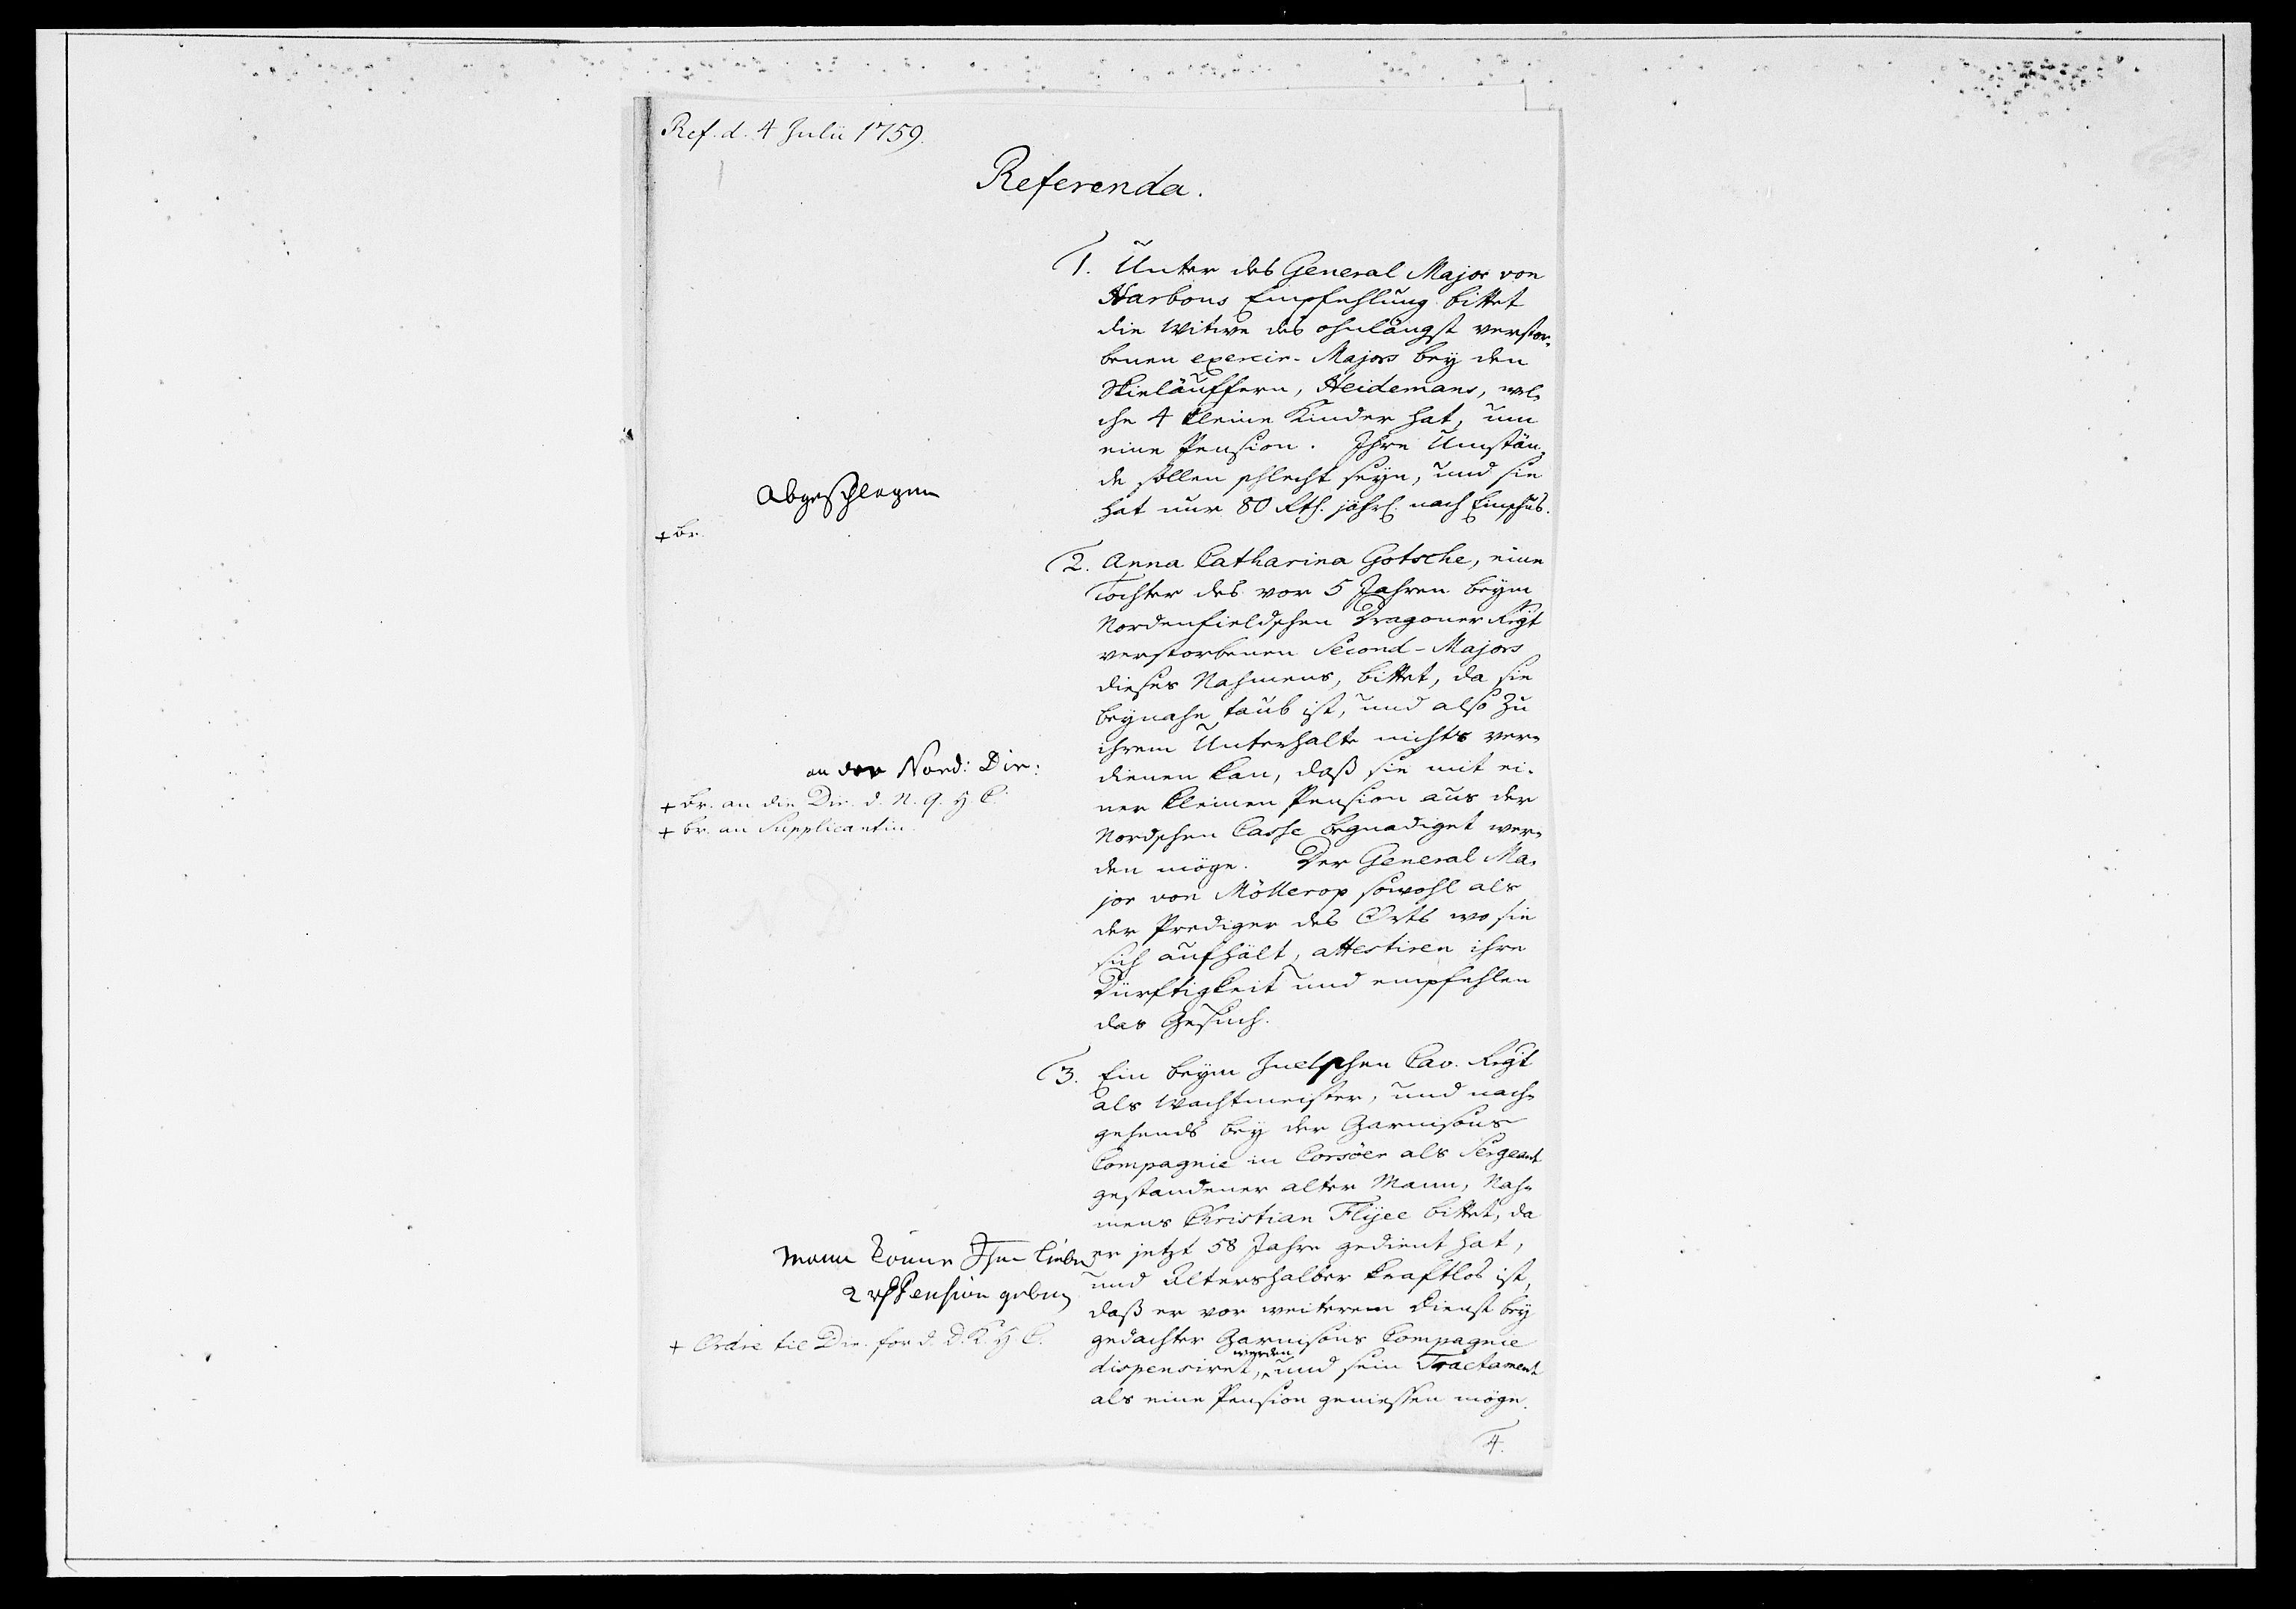 Ref. d. 4 Julii 1759.
Referenda.
1. Unter des General Major von
Harbous Empfehlung bittet
die Witwe des ohnlängst verstor-
benen exercir-Majors bey den
Skieläuffern, Heidemans, wel-
che 4 kleine Kinder hat, um
eine Pension. Ihre Umstän-
de sollen schlecht seyn, und sie
hat nur 80 Rth. jährl. nach
Abgeschlagen
+ br.
2. Anna Catharina Gotsche, eine
Tochter des vor 5 Jahren beym
Nordenfieldschen Dragoner Regt
verstorbenen Second-Majors
dieses Nahmens, bittet, da sie
beynahe taub ist, und also zu
ihrem Unterhalte nichts ver-
dienen kan, daß sie mit ei-
ner kleinen Pension aus der
Nordschen Casse begnadiget wer-
den möge. Der General Ma-
jor von Möllerop sowohl als
der Prediger des Orts wo sie
sich aufhält, attestiren ihre
Dürftigkeit und empfehlen
das Gesuch.
an der Nord: Dir:
+ br. an die Dir. d. N. q. H C.
+ br. an Supplicantin.
N. D
3. Ein beym Juelschen Cav. Regt
als Wachtmeister, und nach-
gehends bey der Garnisons
Compagnie in Corsöer als Sergeant
gestandener alter Mann, Nah-
mens Christian Flyee bittet, da
er jetzt 58 Jahre gedient hat,
und Altershalber kraftlos ist,
daß er vor weiterem Dienst bey
gedachter Garnisons Compagnie
dispensiret, werden und sein Tractament
als eine Pension geniessen möge.
Mann könne Ihm lieber
2 rh Pension geben
+ Ordre til Dir. for d. D. K. H C.
4.